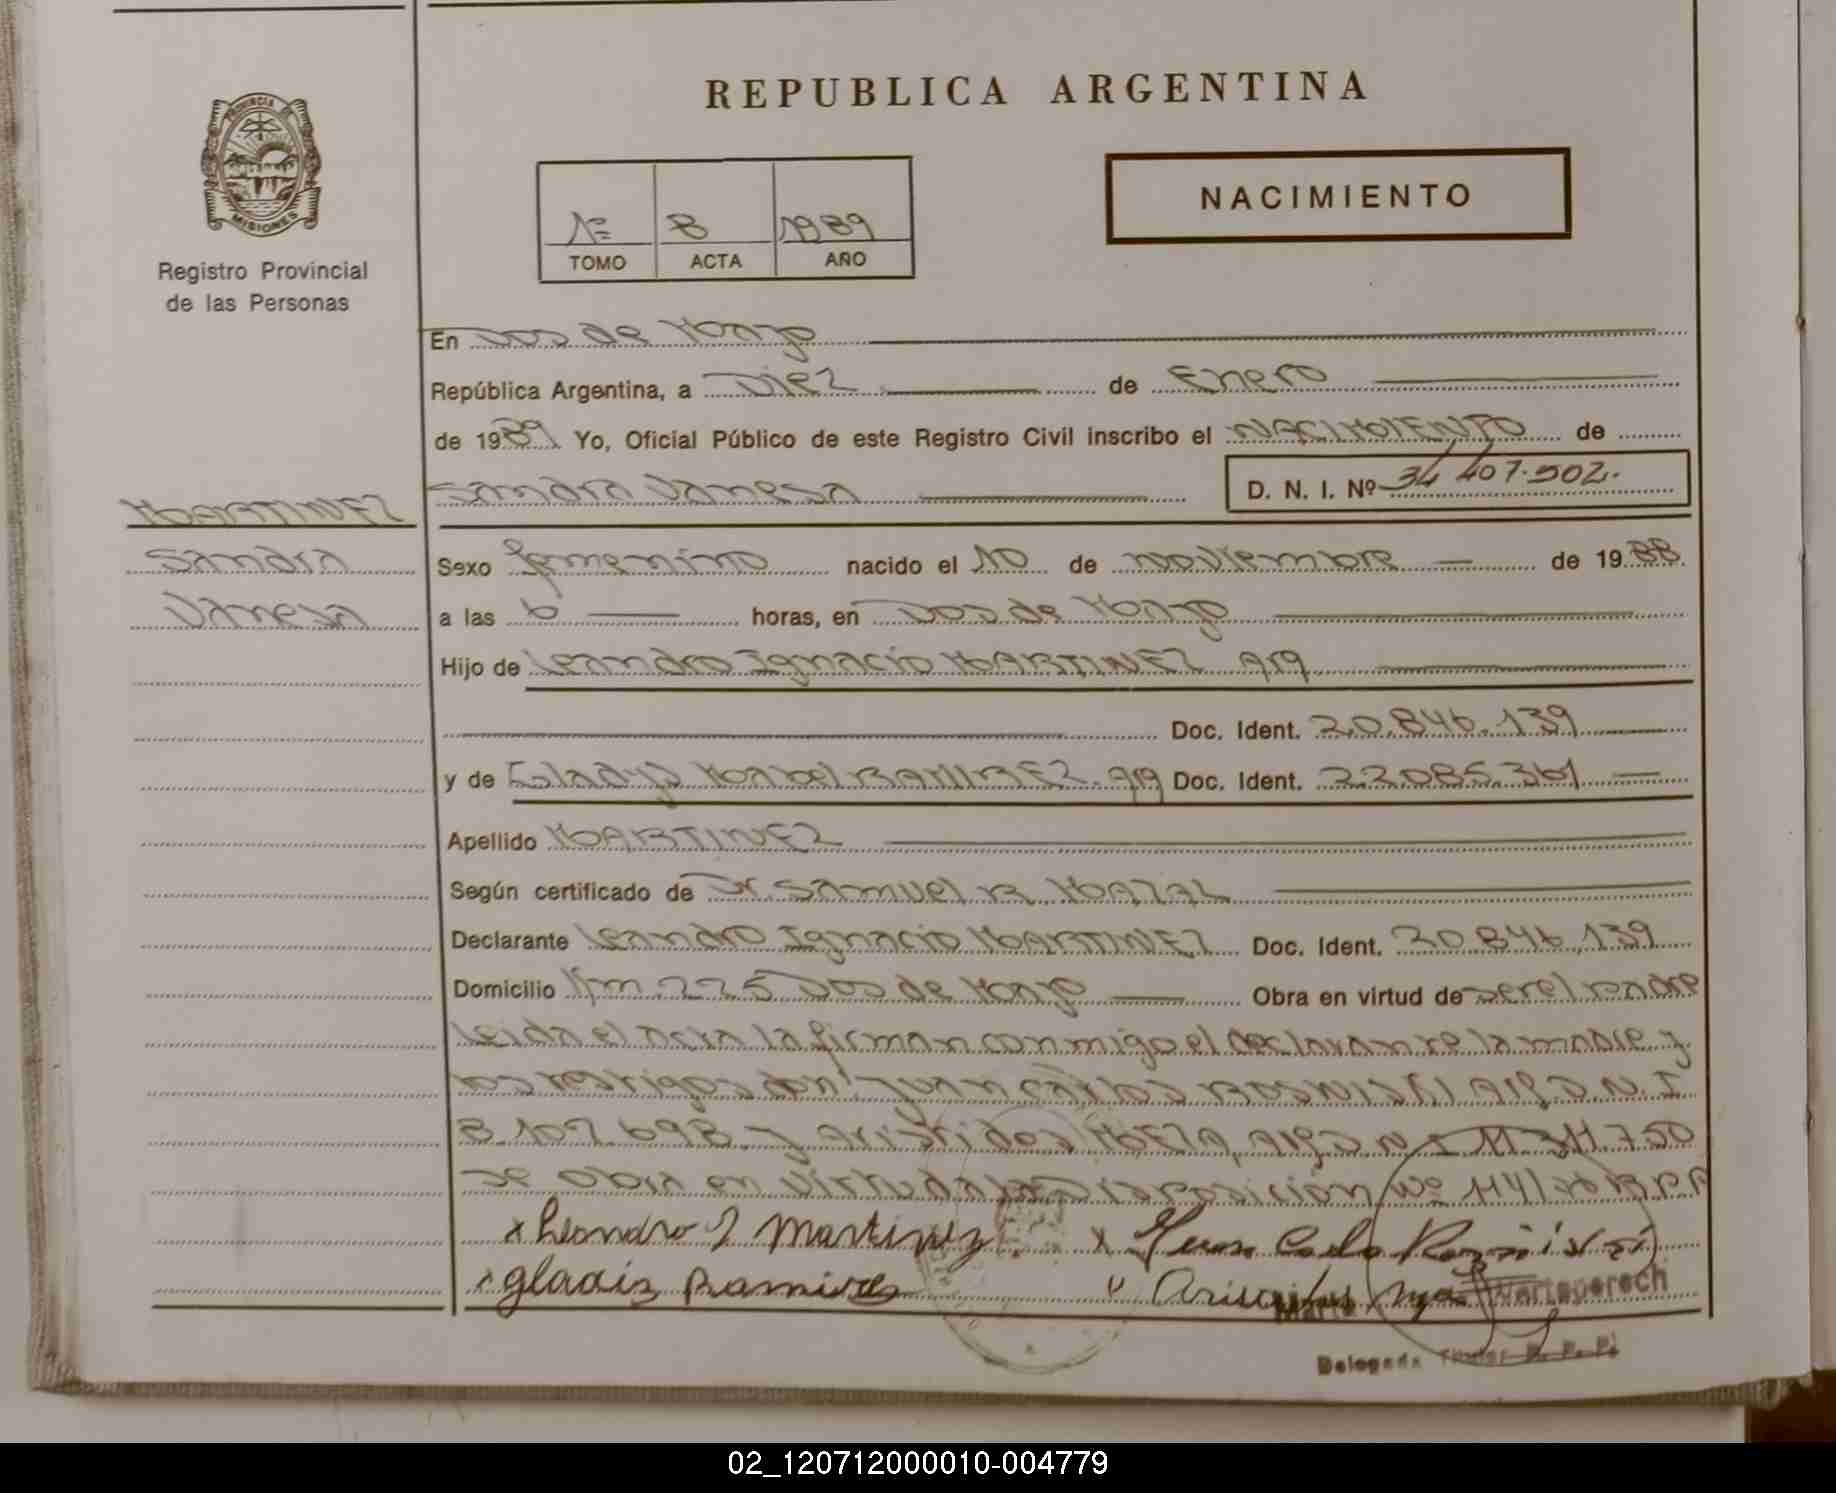 REPUBLICA ARGENTINA
PROVINCIA
MISIONES
Registro Provincial
de las Personas
NACIMIENTO
1º 8 1989
TOMO ACTA AÑO
En Dos de Mayo
República Argentina, a Diez de Enero
de 1989 Yo, Oficial Público de este Registro Civil inscribo el NACIMIENTO de
Sandra Vanesa D. N. I. Nº 34 407.502.
MARTINEZ
Sandra
Vanesa
Sexo femenino nacido el 10 de noviembre de 1988
a las 6 horas, en Dos de Mayo
Hijo de Leandro Ignacio MARTINEZ Arg
Doc. Ident. 20.846.139
y de Gladys Mabel RAMIREZ. Arg Doc. Ident. 22.085.361
Apellido MARTINEZ
Según certificado de Dr. Samuel R
Declarante Leandro Ignacio MARTINEZ Doc. Ident. 20.846.139
Domicilio Km 225 Dos de Mayo Obra en virtud de ser el padre
leida el acta la firman conmigo el declarante la madre y
los testigos don: Juan Carlos D.N.I
8.107.698 y Aristides MEZA, D.N.I 11.311.750
se obra en virtud a la Disposición Nº 114/ R.P.P
x Leandro I Martinez. x Juan Carlo
x gladis Ramires " Aristides
Delegada Titular R. P. P.
02_120712000010-004779